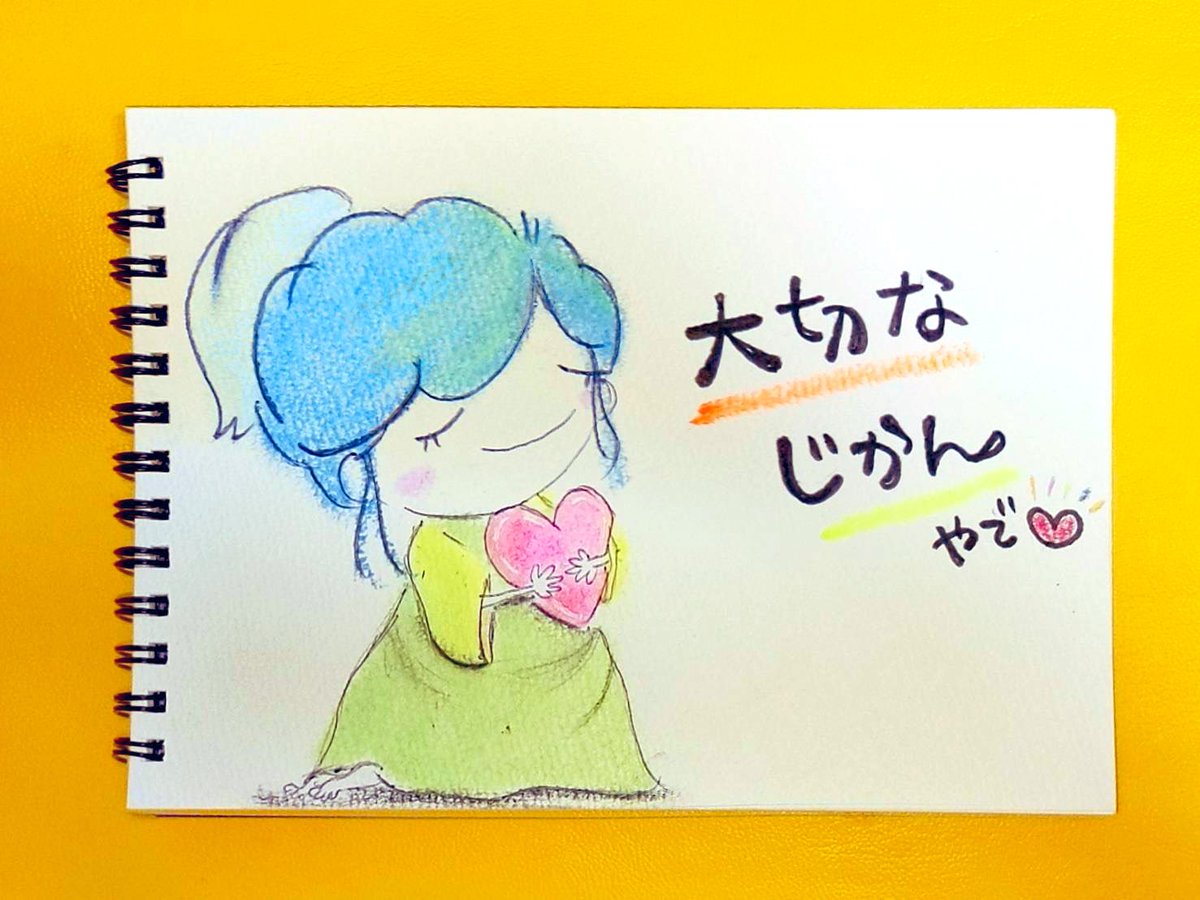 大切な
じかん
やで